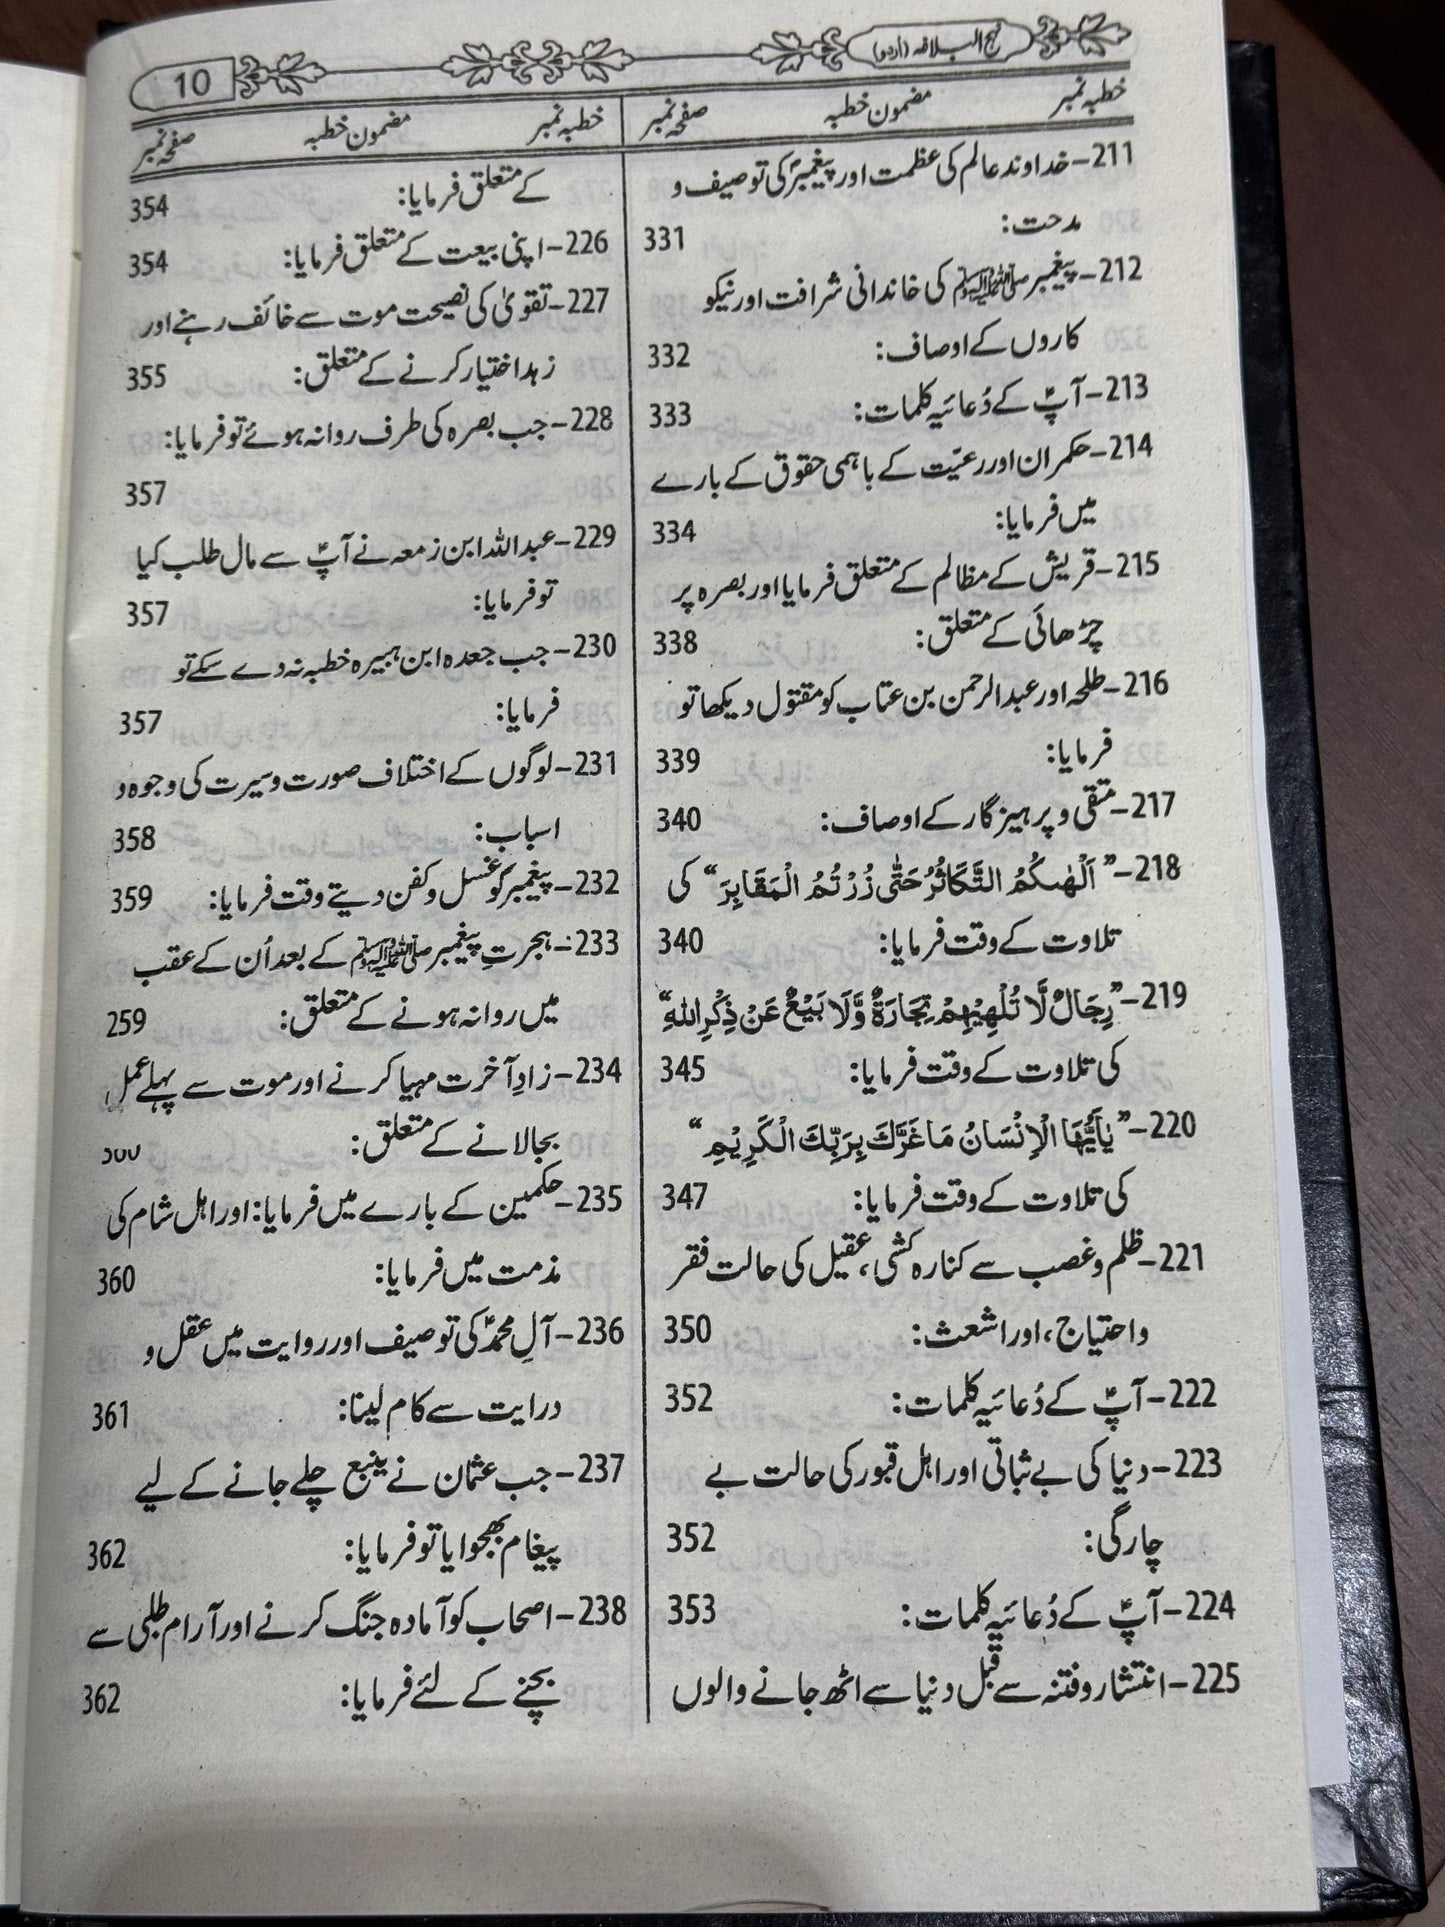 نہج البلاغہ (اردو)
10
خطبہ نمبر مضمون خطبہ صفحہ نمبر
211-خداوند عالم کی عظمت اور پیغمبرؐ کی توصیف و
مدحت: 331
212-پیغمبر ﷺ کی خاندانی شرافت اور نیکو
کاروں کے اوصاف: 332
213-آپؑ کے دُعائیہ کلمات: 333
214-حکمران اور رعیّت کے باہمی حقوق کے بارے
میں فرمایا: 334
215-قریش کے مظالم کے متعلق فرمایا اور بصرہ پر
چڑھائی کے متعلق: 338
216-طلحہ اور عبدالرحمن بن عتاب کو مقتول دیکھا تو
فرمایا: 339
217-متقی و پرہیز گار کے اوصاف: 340
218-”اَلْهٰىكُمُ التَّكَاثُرُ حَتّٰى زُرْتُمُ الْمَقَابِرَ“ کی
تلاوت کے وقت فرمایا: 340
219-”رِجَالٌ لَّا تُلْهِيْهِمْ تِجَارَةٌ وَّلَا بَيْعٌ عَنْ ذِكْرِ اللهِ“
کی تلاوت کے وقت فرمایا: 345
220-”يٰاَيُّهَا الْاِنْسَانُ مَا غَرَّكَ بِرَبِّكَ الْكَرِيْمِ“
کی تلاوت کے وقت فرمایا: 347
221-ظلم و غصب سے کنارہ کشی، عقیل کی حالت فقر
و احتیاج، اور اشعث: 350
222-آپؑ کے دُعائیہ کلمات: 352
223-دنیا کی بے ثباتی اور اہل قبور کی حالت بے
چارگی: 352
224-آپؑ کے دُعائیہ کلمات: 353
225-انتشار و فتنہ سے قبل دنیا سے اٹھ جانے والوں
خطبہ نمبر مضمون خطبہ صفحہ نمبر
کے متعلق فرمایا: 354
226-اپنی بیعت کے متعلق فرمایا: 354
227-تقویٰ کی نصیحت موت سے خائف رہنے اور
زہد اختیار کرنے کے متعلق: 355
228-جب بصرہ کی طرف روانہ ہوئے تو فرمایا:
357
229-عبداللہ ابن زمعہ نے آپؑ سے مال طلب کیا
تو فرمایا: 357
230-جب جعدہ ابن ہبیرہ خطبہ نہ دے سکے تو
فرمایا: 357
231-لوگوں کے اختلاف صورت و سیرت کی وجوہ و
اسباب: 358
232-پیغمبرؐ کو غسل و کفن دیتے وقت فرمایا: 359
233-ہجرتِ پیغمبر ﷺ کے بعد اُن کے عقب
میں روانہ ہونے کے متعلق: 259
234-زادِ آخرت مہیا کرنے اور موت سے پہلے عمل
بجالانے کے متعلق:
235-حکمین کے بارے میں فرمایا: اور اہل شام کی
مذمت میں فرمایا: 360
236-آلِ محمدؑ کی توصیف اور روایت میں عقل و
درایت سے کام لینا: 361
237-جب عثمان نے ینبع چلے جانے کے لیے
پیغام بھجوایا تو فرمایا: 362
238-اصحاب کو آمادہ جنگ کرنے اور آرام طلبی سے
بچنے کے لئے فرمایا: 362